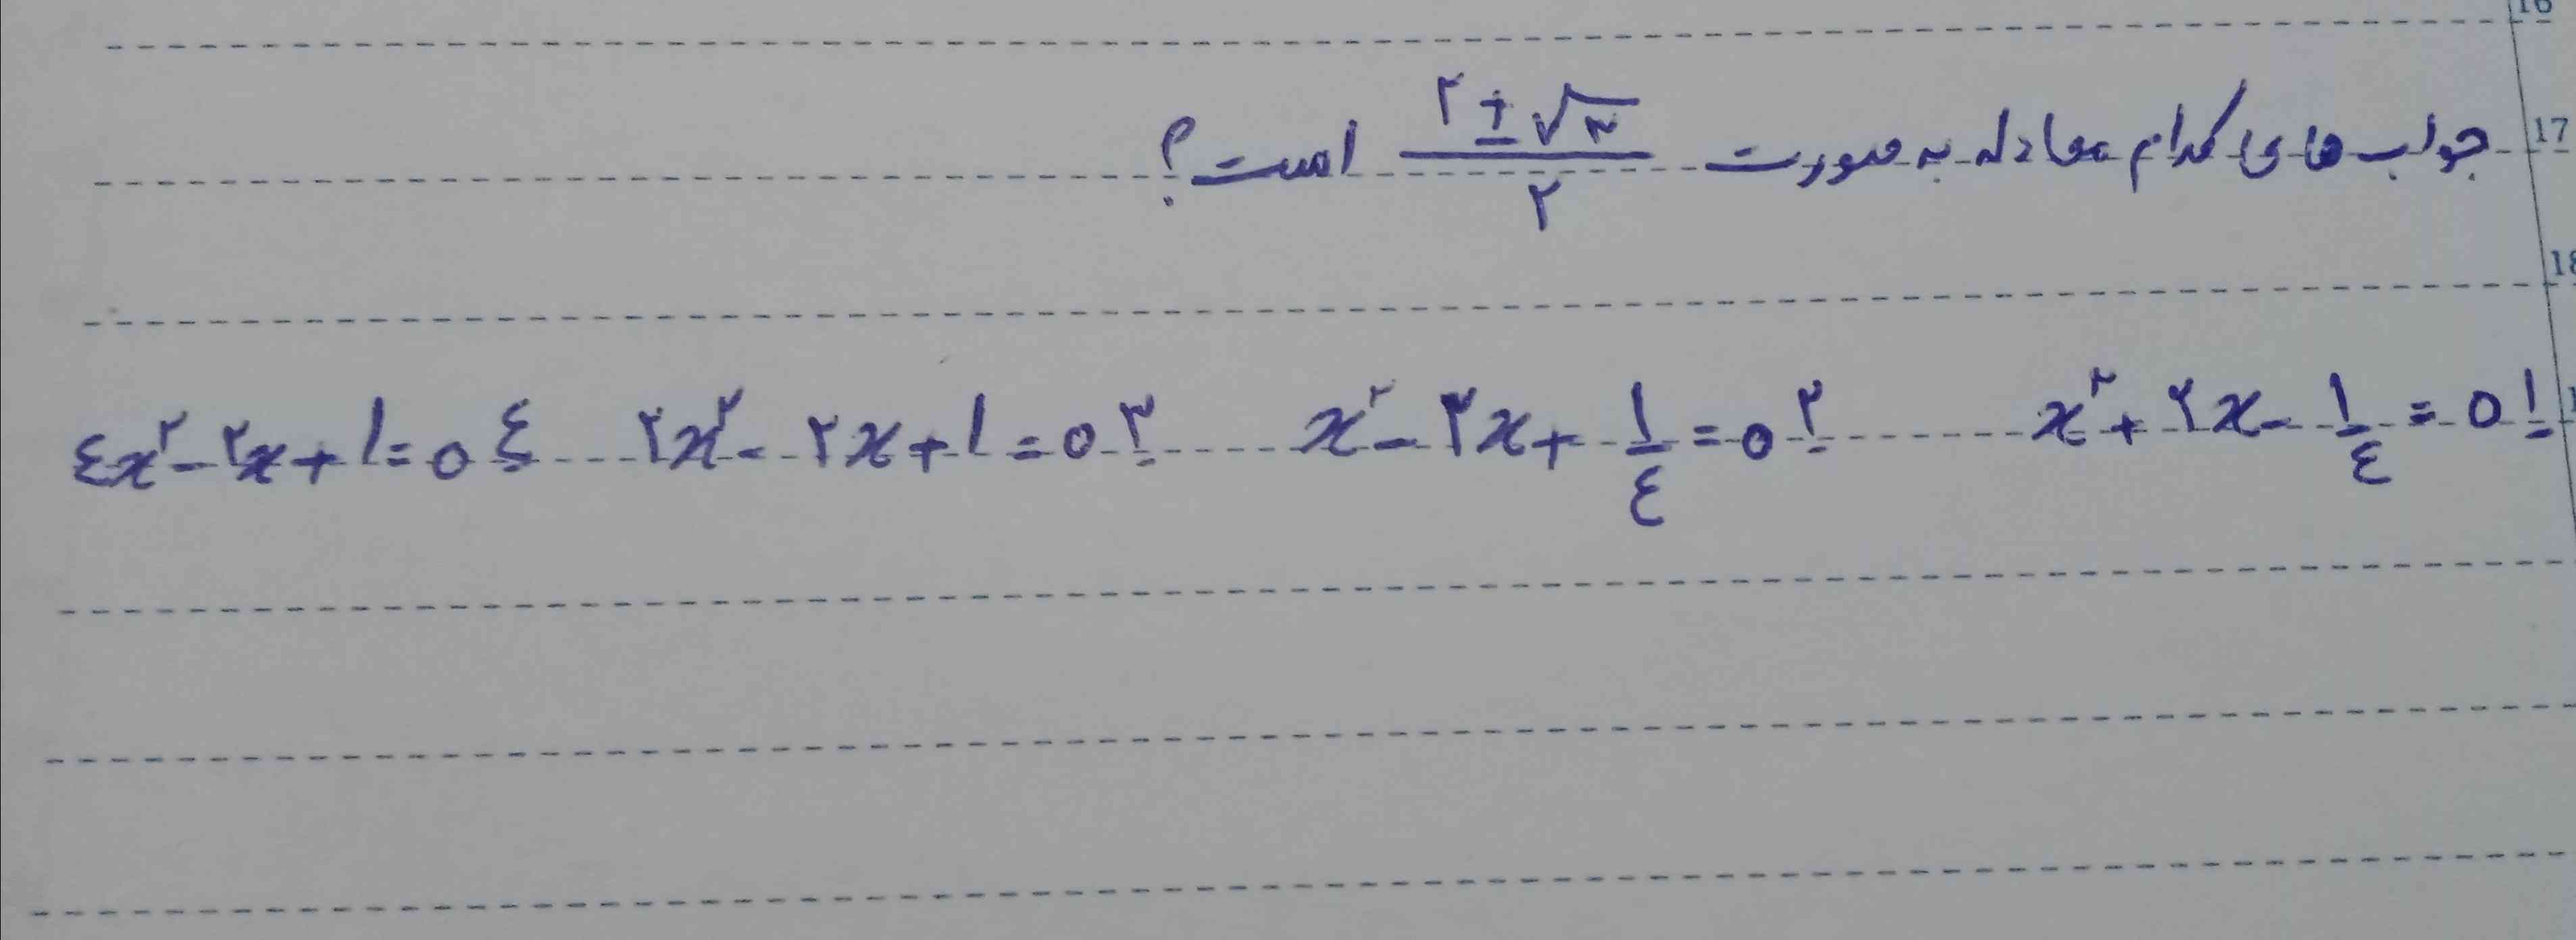 16
17 جواب های کدام معادله به صورت (۲ ± √۳)/۲ است؟
18
۱) x² + ۲x - ۱/٤ = ۰ ۲) x² - ۲x + ۱/٤ = ۰ ۳) ۲x² - ۲x + ۱ = ۰ ٤) ٤x² - ۲x + ۱ = ۰